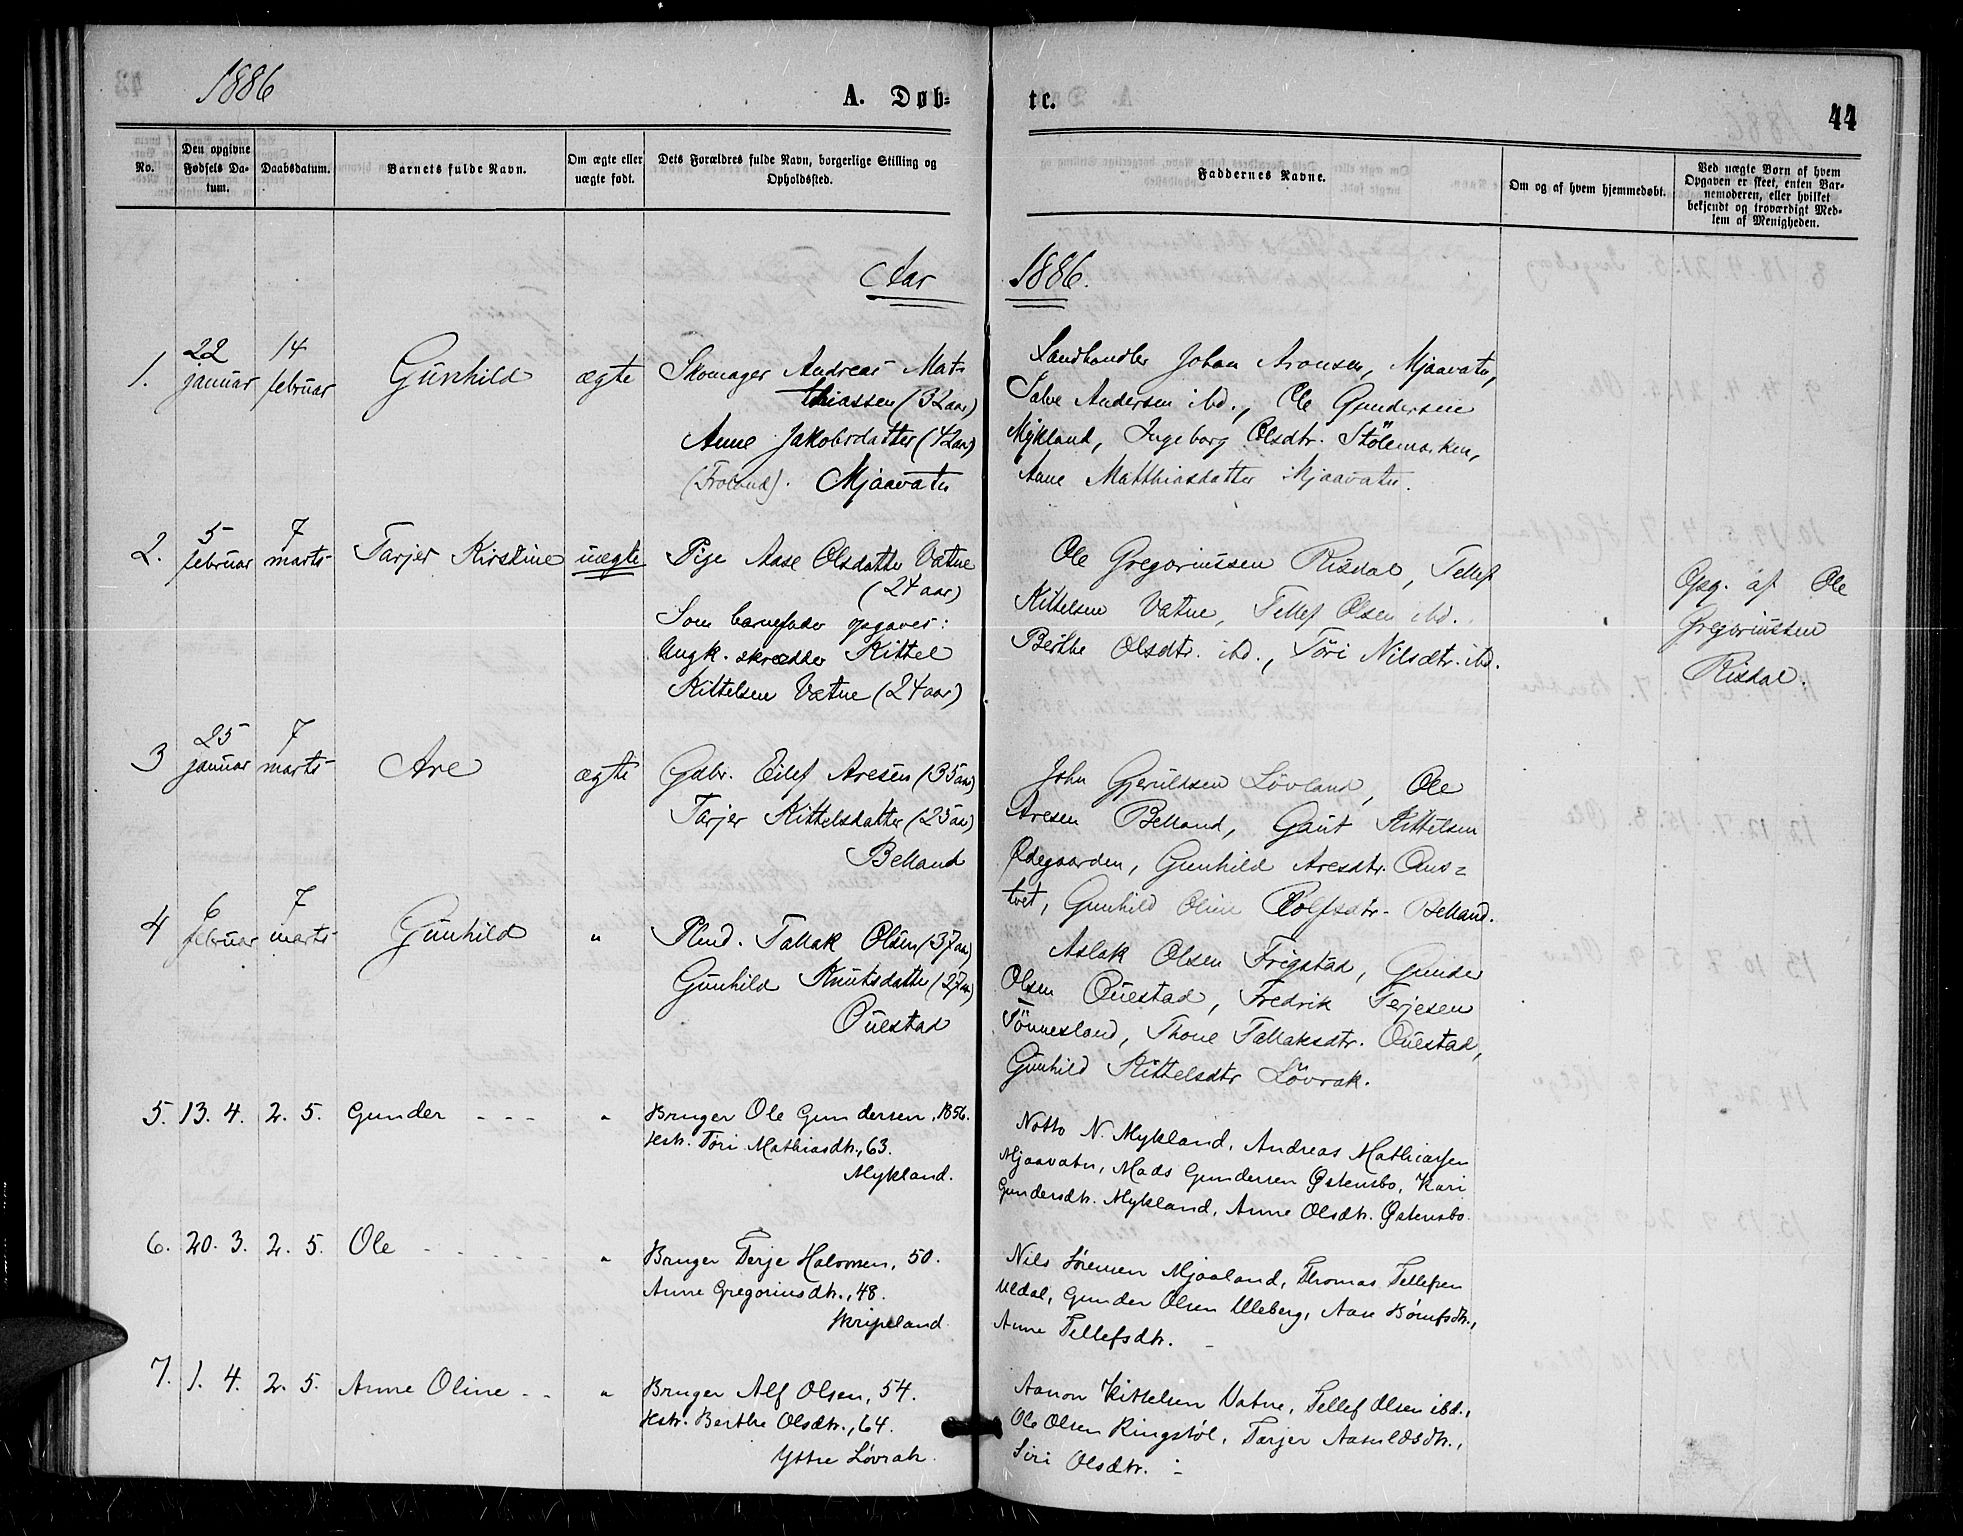 1886
A. Døb-
tc.
44
No.
Den opgivne Fødsels Da-
tum.
Daabsdatum.
Barnets fulde Navn.
Om ægte eller
uægte født.
Dets Forældres fulde Navn, borgerlige Stilling og
Opholdssted.
Faddernes Navne.
Om og af hvem hjemmedøbt.
Ved uægte Born af hvem
Opgaven er skeet, enten Bar-
nemoderen, eller hvilket
bekjendt og troværdigt Med-
lem af Menigheden.
Aar 1886.
1. 22 januar 14 februar Gunhild ægte
Skomager Andreas Mat-
thiassen (32 aar)
Anne Jakobsdatter (42 aar)
(Froland). Mjaavatn
Landhandler Johan Aronsen, Mjaavatn,
Salve Andersen ibd., Ole Gundersen
Mykland, Ingeborg Olsdtr. Stölemarken,
Anne Matthiasdatter Mjaavatn.
2. 5 februar 7 marts Tarjer Kirstine uægte
Pige Aase Olsdatter Vatne
(24 aar)
Som barnefader opgaves:
Ungk. skrædder Kittel
Kittelsen Vatne (24 aar)
Ole Gregoriussen Risdal, Tellef
Kittelsen Vatne, Tellef Olsen ibd.
Berthe Olsdtr. ibd., Töri Nilsdtr. ibd.
Opg. af Ole
Gregoriussen
Risdal.
3 25 januar 7 marts Are ægte
Gdbr. Eilef Aresen (35 aar)
Tarjer Kittelsdatter (25 aar)
Belland
John Gjeruldsen Lövland, Ole
Aresen Belland, Gaut Kittelsen
Ødegaarden, Gunhild Aresdtr. Aus-
tvet, Gunhild Oline Rolfsdtr. Belland.
4 6 februar 7 marts Gunhild "
Plud. Tallak Olsen (37 aar)
Gunhild Knutsdatter (27 aar)
Ouestad
Aslak Olsen Frigstad, Gunder
Olsen Ouestad, Fredrik Terjesen
Tönnesland, Thone Tallaksdtr. Ouestad,
Gunhild Kittelsdtr Lövrak.
5. 13. 4. 2. 5. Gunder - - - "
Bruger Ole Gundersen, 1856.
Hstr. Tøri Mathiasdtr., 63.
Mykland.
Notto N. Mykland, Andreas Mathiassen
Mjaavatn, Mads Gundersen Østensbo, Kari
Gundersdtr. Mykland, Anne Olsdtr. Østensbo.
6. 20. 3. 2. 5. Ole - - - - - "
Bruger Terje Halvorsen, 50.
Anne Gregoriusdtr., 48.
Skripeland.
Nils Sørensen Mjaaland, Thomas Tellefsen
Uldal, Gunder Olsen Uleberg, Aase Børufsdtr.,
Anne Tellefsdtr. -
7. 1. 4. 2. 5. Anne Oline - - "
Bruger Alf Olsen, 54.
Hstr. Berthe Olsdtr., 64.
Yttre Løvrak.
Aanon Kittelsen Vatne, Tellef Olsen ibd.,
Ole Olsen Ringstøl, Tarjer Aasuldsdtr.,
Siri Olsdtr. -